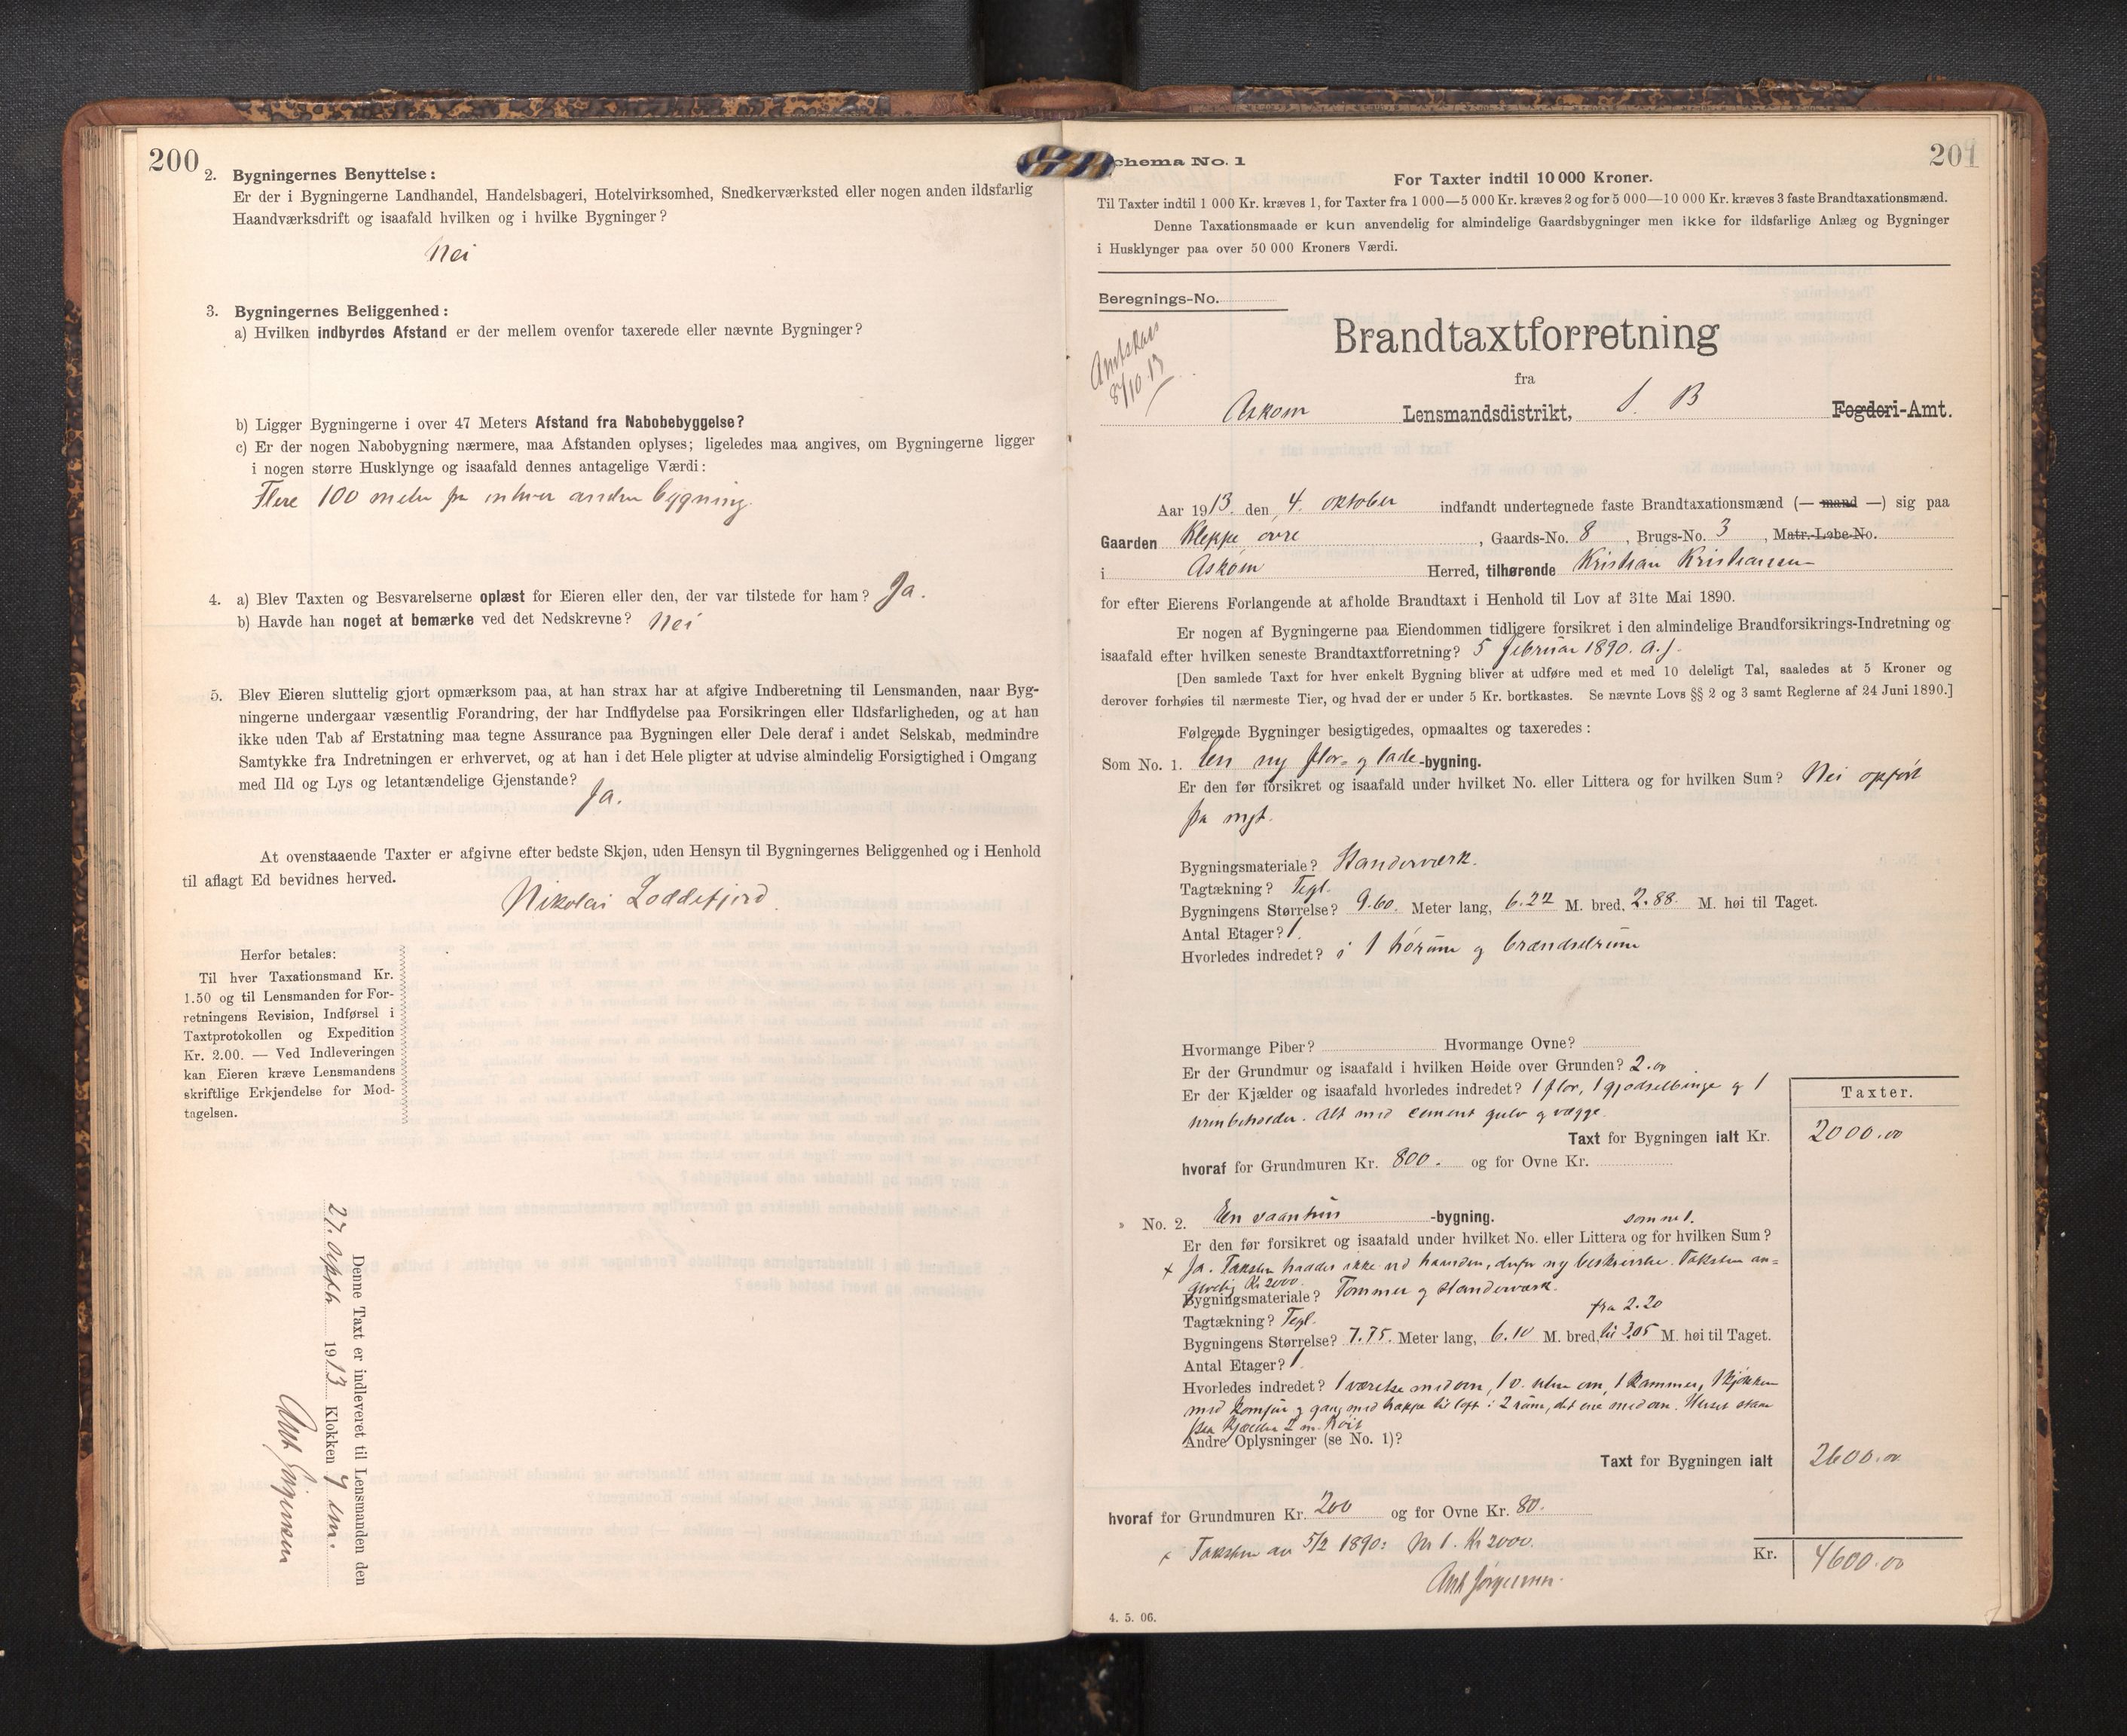 200
2. Bygningernes Benyttelse:
Er der i Bygningerne Landhandel, Handelsbageri, Hotelvirksomhed, Snedkerværksted eller nogen anden ildsfarlig
Haandværksdrift og isaafald hvilken og i hvilke Bygninger?
Nei
3. Bygningernes Beliggenhed:
a) Hvilken indbyrdes Afstand er der mellem ovenfor taxerede eller nævnte Bygninger?
b) Ligger Bygningerne i over 47 Meters Afstand fra Nabobebyggelse?
c) Er der nogen Nabobygning nærmere, maa Afstanden oplyses; ligeledes maa angives, om Bygningerne ligger
i nogen større Husklynge og isaafald dennes antagelige Værdi:
Flere 100 meter fra enhver anden bygning.
4. a) Blev Taxten og Besvarelserne oplæst for Eieren eller den, der var tilstede for ham? Ja.
b) Havde han noget at bemærke ved det Nedskrevne? Nei
5. Blev Eieren sluttelig gjort opmærksom paa, at han strax har at afgive Indberetning til Lensmanden, naar Byg-
ningerne undergaar væsentlig Forandring, der har Indflydelse paa Forsikringen eller Ildsfarligheden, og at han
ikke uden Tab af Erstatning maa tegne Assurance paa Bygningen eller Dele deraf i andet Selskab, medmindre
Samtykke fra Indretningen er erhvervet, og at han i det Hele pligter at udvise almindelig Forsigtighed i Omgang
med Ild og Lys og letantændelige Gjenstande? Ja.
At ovenstaaende Taxter er afgivne efter bedste Skjøn, uden Hensyn til Bygningernes Beliggenhed og i Henhold
til aflagt Ed bevidnes herved.
Nikolai Loddefjord.
Herfor betales:
Til hver Taxationsmand Kr.
1.50 og til Lensmanden for For-
retningens Revision, Indførsel i
Taxtprotokollen og Expedition
Kr. 2.00. — Ved Indleveringen
kan Eieren kræve Lensmandens
skriftlige Erkjendelse for Mod-
tagelsen.
Denne Taxt er indleveret til Lensmanden den
27. 1913 Klokken 7 em.
Ant Jørgensen
Schema No. 1
201
For Taxter indtil 10 000 Kroner.
Til Taxter indtil 1 000 Kr. kræves 1, for Taxter fra 1 000—5 000 Kr. kræves 2 og for 5 000—10 000 Kr. kræves 3 faste Brandtaxationsmænd.
Denne Taxationsmaade er kun anvendelig for almindelige Gaardsbygninger men ikke for ildsfarlige Anlæg og Bygninger
i Husklynger paa over 50 000 Kroners Værdi.
Beregnings-No.
8/10 13
Brandtaxtforretning
fra
Askøen Lensmandsdistrikt, S. B Fogderi-Amt.
Aar 1913. den 4. oktober indfandt undertegnede faste Brandtaxationsmænd (— mand —) sig paa
Gaarden Kleppe øvre, Gaards-No. 8, Brugs-No. 3, Matr.-Løbe-No.
i Askøen Herred, tilhørende Kristian Kristiansen
for efter Eierens Forlangende at afholde Brandtaxt i Henhold til Lov af 31te Mai 1890.
Er nogen af Bygningerne paa Eiendommen tidligere forsikret i den almindelige Brandforsikrings-Indretning og
isaafald efter hvilken seneste Brandtaxtforretning? 5 februar 1890. A. J.
[Den samlede Taxt for hver enkelt Bygning bliver at udføre med et med 10 deleligt Tal, saaledes at 5 Kroner og
derover forhøies til nærmeste Tier, og hvad der er under 5 Kr. bortkastes. Se nævnte Lovs §§ 2 og 3 samt Reglerne af 24 Juni 1890.]
Følgende Bygninger besigtigedes, opmaaltes og taxeredes:
Som No. 1. En ny flor- og lade-bygning.
Er den før forsikret og isaafald under hvilket No. eller Littera og for hvilken Sum? Nei opført
fra nyt.
Bygningsmateriale? Standerværk.
Tagtækning? Tegl.
Bygningens Størrelse? 9.60. Meter lang, 6.22 M. bred, 2.88. M. høi til Taget.
Antal Etager? 1.
Hvorledes indredet? i 1 hørum og brændselrum
Hvormange Piber? Hvormange Ovne?
Er der Grundmur og isaafald i hvilken Høide over Grunden? 2.00
Er der Kjælder og isaafald hvorledes indredet? 1 flor, 1 gjødselbinge og 1
urinbeholder. Alt med cement gulv og vægge.
Taxter.
Taxt for Bygningen ialt Kr. 2000.00
hvoraf for Grundmuren Kr. 800. og for Ovne Kr.
» No. 2. En vaanhus-bygning. som no 1.
Er den før forsikret og isaafald under hvilket No. eller Littera og for hvilken Sum?
x Ja. Taksten haades ikke ved haanden, derfor ny beskrivelse. Taksten an-
givelig Kr 2000.
Bygningsmateriale? Tømmer og standerværk.
Tagtækning? Tegl. fra 2.20
Bygningens Størrelse? 7.75. Meter lang, 6.10 M. bred, til 3.05 M. høi til Taget.
Antal Etager? 1.
Hvorledes indredet? 1 værelse med ovn, 1 v. uten ovn, 1 kammer, 1 kjøkken
med komfur og gang med trappe til loft i 2 rum, det ene med ovn. Huset staar
paa kjælder 2 m. høit
Andre Oplysninger (se No. 1)?
Taxt for Bygningen ialt 2600.00
hvoraf for Grundmuren Kr. 200 og for Ovne Kr. 80.
x Taksten av 5/2 1890: Nr 1. Kr 2000.
Ant Jørgensen.
Kr. 4600.00
4. 5. 06.